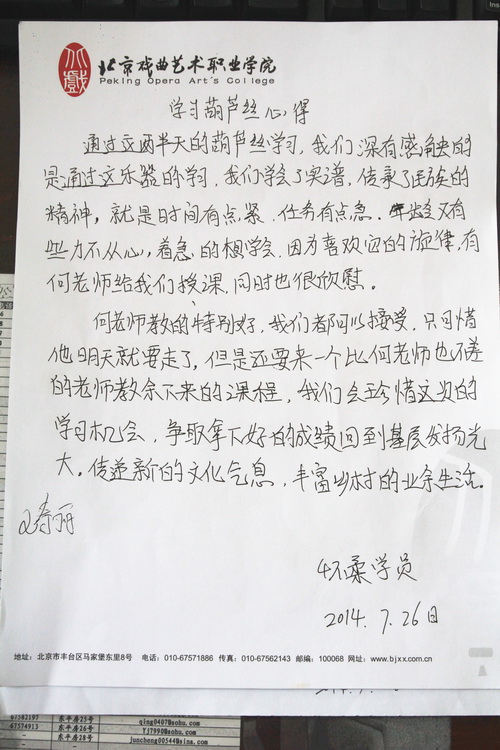 北戏
北京戏曲艺术职业学院
Peking Opera Art's College
学习葫芦丝心得
通过这两半天的葫芦丝学习，我们深有感触的
是通过这乐器的学习，我们学会了实谱，传承了民族的
精神，就是时间有点紧，任务有点急，年龄又有
些力不从心，着急的想学会，因为喜欢它的旋律，有
何老师给我们授课，同时也很欣慰。
何老师教的特别好，我们都可以接受，只可惜
他明天就要走了，但是还要来一个比何老师也不差
的老师教余下来的课程，我们会珍惜这次的
学习机会，争取拿下好的成绩回到基层发扬光
大，传递新的文化气息，丰富乡村的业余生活。
寿丽
怀柔学员
2014.7.26日
地址：北京市丰台区马家堡东里8号 电话：010-67571886 传真：010-67562143 邮编：100068 网址：www.bjxx.com.cn
67582197 东平房23号 qing0407@sohu.com
67574913 东平房26号 Yj7990@sohu.com
东平房28号 juncheng00544@sina.com